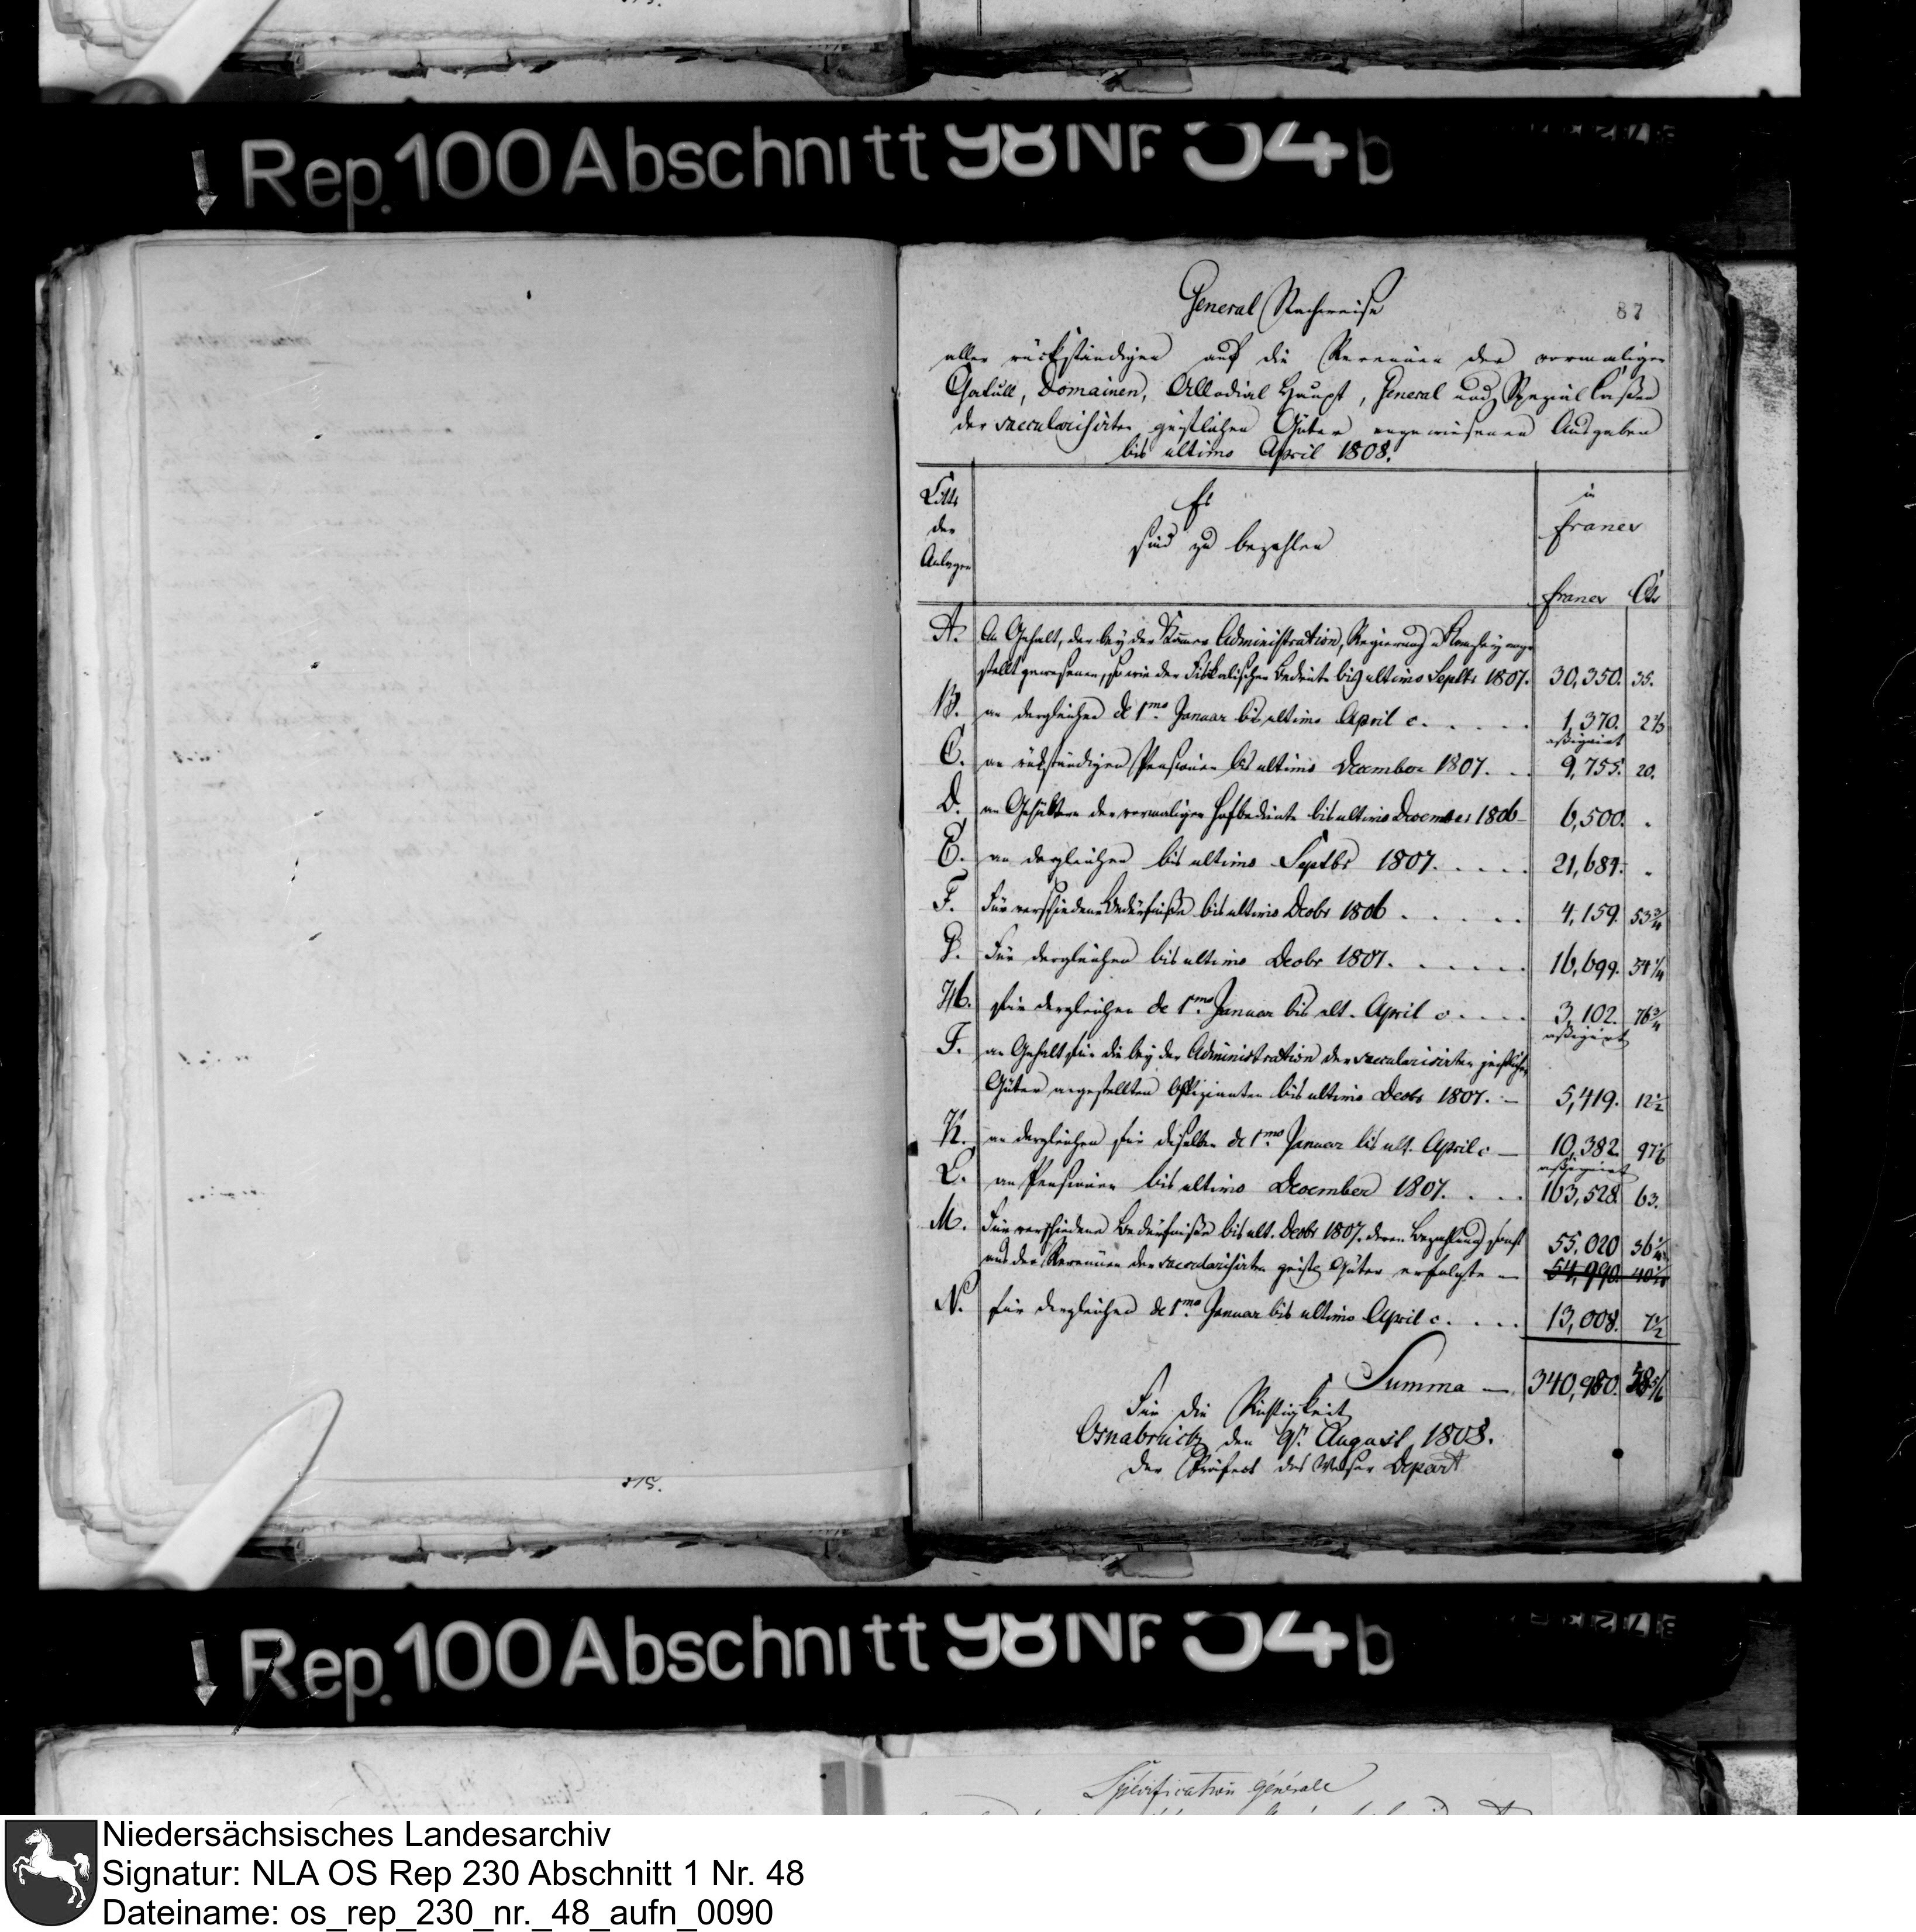 Rep. 100 Abschnitt 98 Nr. 54 b
87
General Nachweise
aller rückständigen auf die Revenüen der vormaligen
Chatull, Domainen, Allodial Haupt, General und Spezial Caßen
der saecularisirten geistlichen Güter angewiesenen Ausgaben
bis ultimo April 1808.
Littr der Anlagen
Es sind zu bezahlen
in Francs
Francs Cts
A. An Gehalt, der bey der Administration, Regierung u Kanzley ange
stellt gewesenen, so wie der Fiskalischen Bediente bis ultimo Septbr 1807. 30,350. 35.
B. an dergleichen de 1mo Januar bis ultimo April c. 1,370. 2⅓
aßignirt
C. an rükständigen Pensionen bis ultimo December 1807. 9,755. 20.
D. an Gehältern der vormaligen Hofbediente bis ultimo December 1806 – 6,500. .
E. an dergleichen bis ultimo Septbr 1807. 21,684. .
F. Für verschiedene Bedürfniße bis ultimo Decbr 1806 4,159. 53¾
G. Für dergleichen bis ultimo Decbr 1807. 16,699. 54¼
H. für dergleichen de 1mo Januar bis ult. April c. 3,102. 76¾
aßignirt
J. an Gehalt für die bey der Administration der saecularisirten geistlichen
Güter angestellten Offizianten bis ultimo Decbr 1807. – 5,419. 12½
K. an dergleichen für dieselben de 1mo Januar bis ult. April c – 10,382. 97
aßignirt
L. an Pensionen bis ultimo December 1807. 163,528. 63.
M. Für verschiedene Bedürfniße bis ult. Decbr 1807. deren Bezahlung sonst 55,020 36¼
aus den Revenüen der saecularisirten geistl. Güter erfolgte – 54,990. 40
N. für dergleichen de 1mo Januar bis ultimo April c. 13,008. 7½
Summa – 340,980. 38⅚
Für die Richtigkeit
Osnabrück den 9n. August 1808.
Der Präfect des Weser Depart
Rep. 100 Abschnitt 98 Nr. 54 b
Spécification générale
Niedersächsisches Landesarchiv
Signatur: NLA OS Rep 230 Abschnitt 1 Nr. 48
Dateiname: os_rep_230_nr._48_aufn_0090